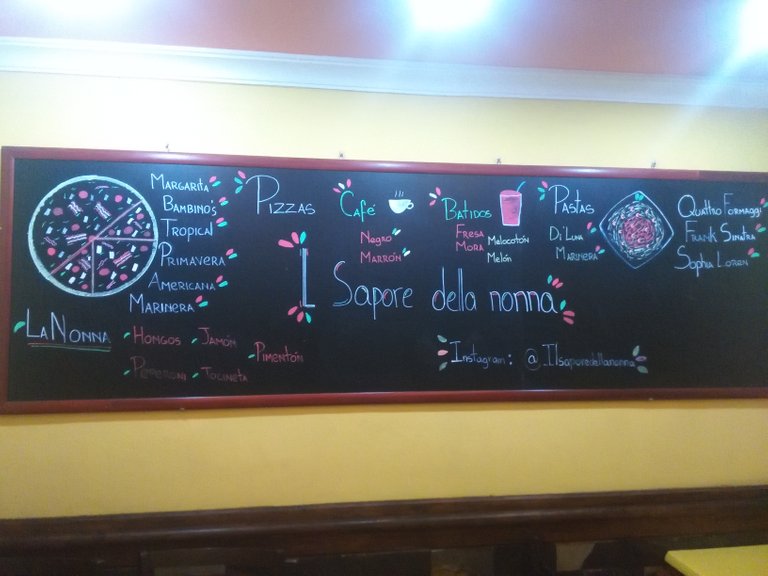 Margarita
Bambino's
Tropical
Primavera
Americana
Marinera
Pizzas
La Nonna
Hongos
Jamón
Pimentón
Peperoni
Tocineta
Café
Negro
Marrón
Batidos
Fresa
Mora
Melocotón
Melón
Pastas
Di'Luna
Marinera
Quattro Formaggi
Frank Sinatra
Sophia Loren
IL Sapore della nonna
Instagram: @_Ilsaporedellanonna